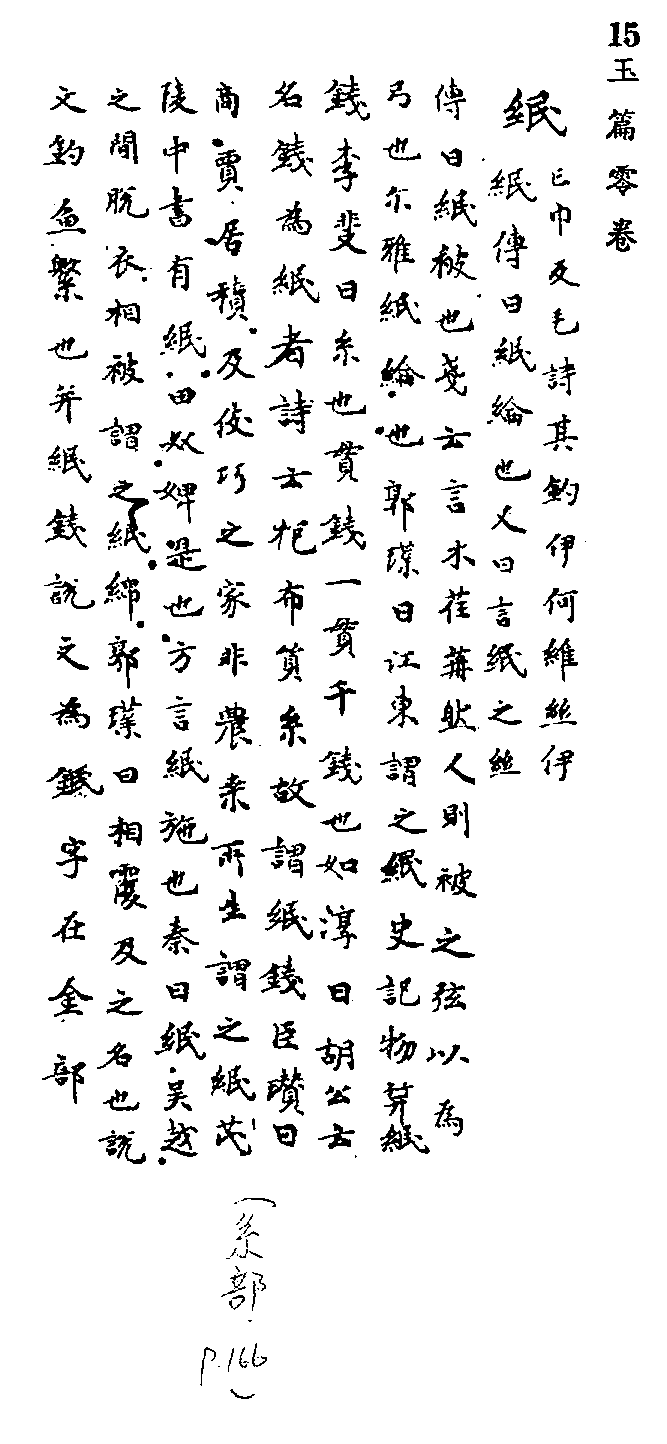 15 玉篇零卷
緍
亡巾反毛詩其釣伊何維絲伊
緍傳曰緍綸也又曰言緍之絲
傳曰緍被也戔云言木荏苒然人則被之弦以為
弓也尒雅緍綸也郭璞曰江東謂之緍史記物筭緍
錢李斐曰糸也貫錢一貫千錢也如淳曰胡公云
名錢為緍者詩云抱布貿糸故謂緍錢臣瓉曰
商賈居積及伎巧之家非農桒所生謂之緍茂
陵中書有緍田奴婢是也方言緍施也秦曰緍吴越
之間脫衣相被謂之緍緜郭璞曰相覆及之名也說
文釣魚繁也并緍錢說文為鍲字在金部
(糸部
P.166)